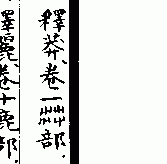 釋莽、卷一茻部.
釋麗、卷十鹿部.